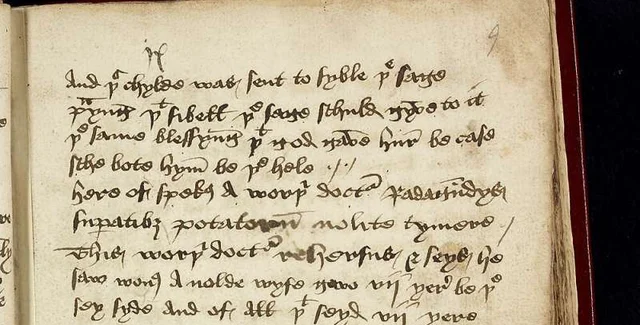 And þᵗ chylde was sent to syble þᵉ sage
p̄yng þᵗ sibell þᵉ sage schuld gyve to it
þᵉ same blessyng þᵗ god gave hur be case
sche bote hym be þᵉ hele
here of spekꝭ A worpͬ doctͬ
potatorum nolite tymere
This worpͬ doctͬ rehersus & seys he
saw wons A nolde wyfe gevo vij yerͬ be þᵉ
sey syde And of all þᵗ seyd vij yere